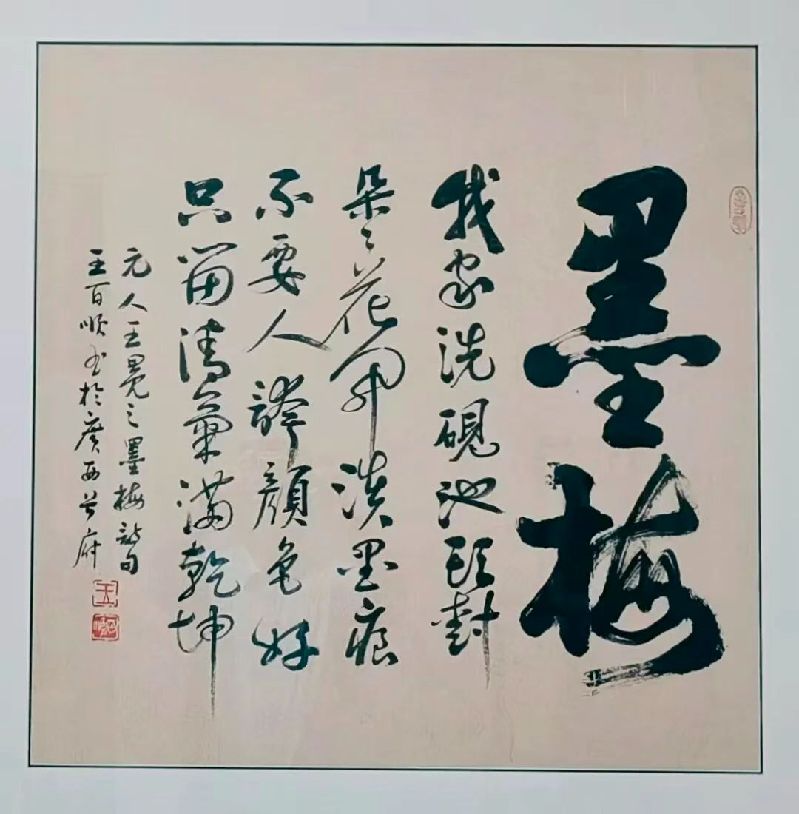 墨梅
我家洗硯池頭樹
朵々花開淡墨痕
不要人誇顏色好
只留清氣滿乾坤
元人王冕之墨梅詩句
王百順書於廣西首府